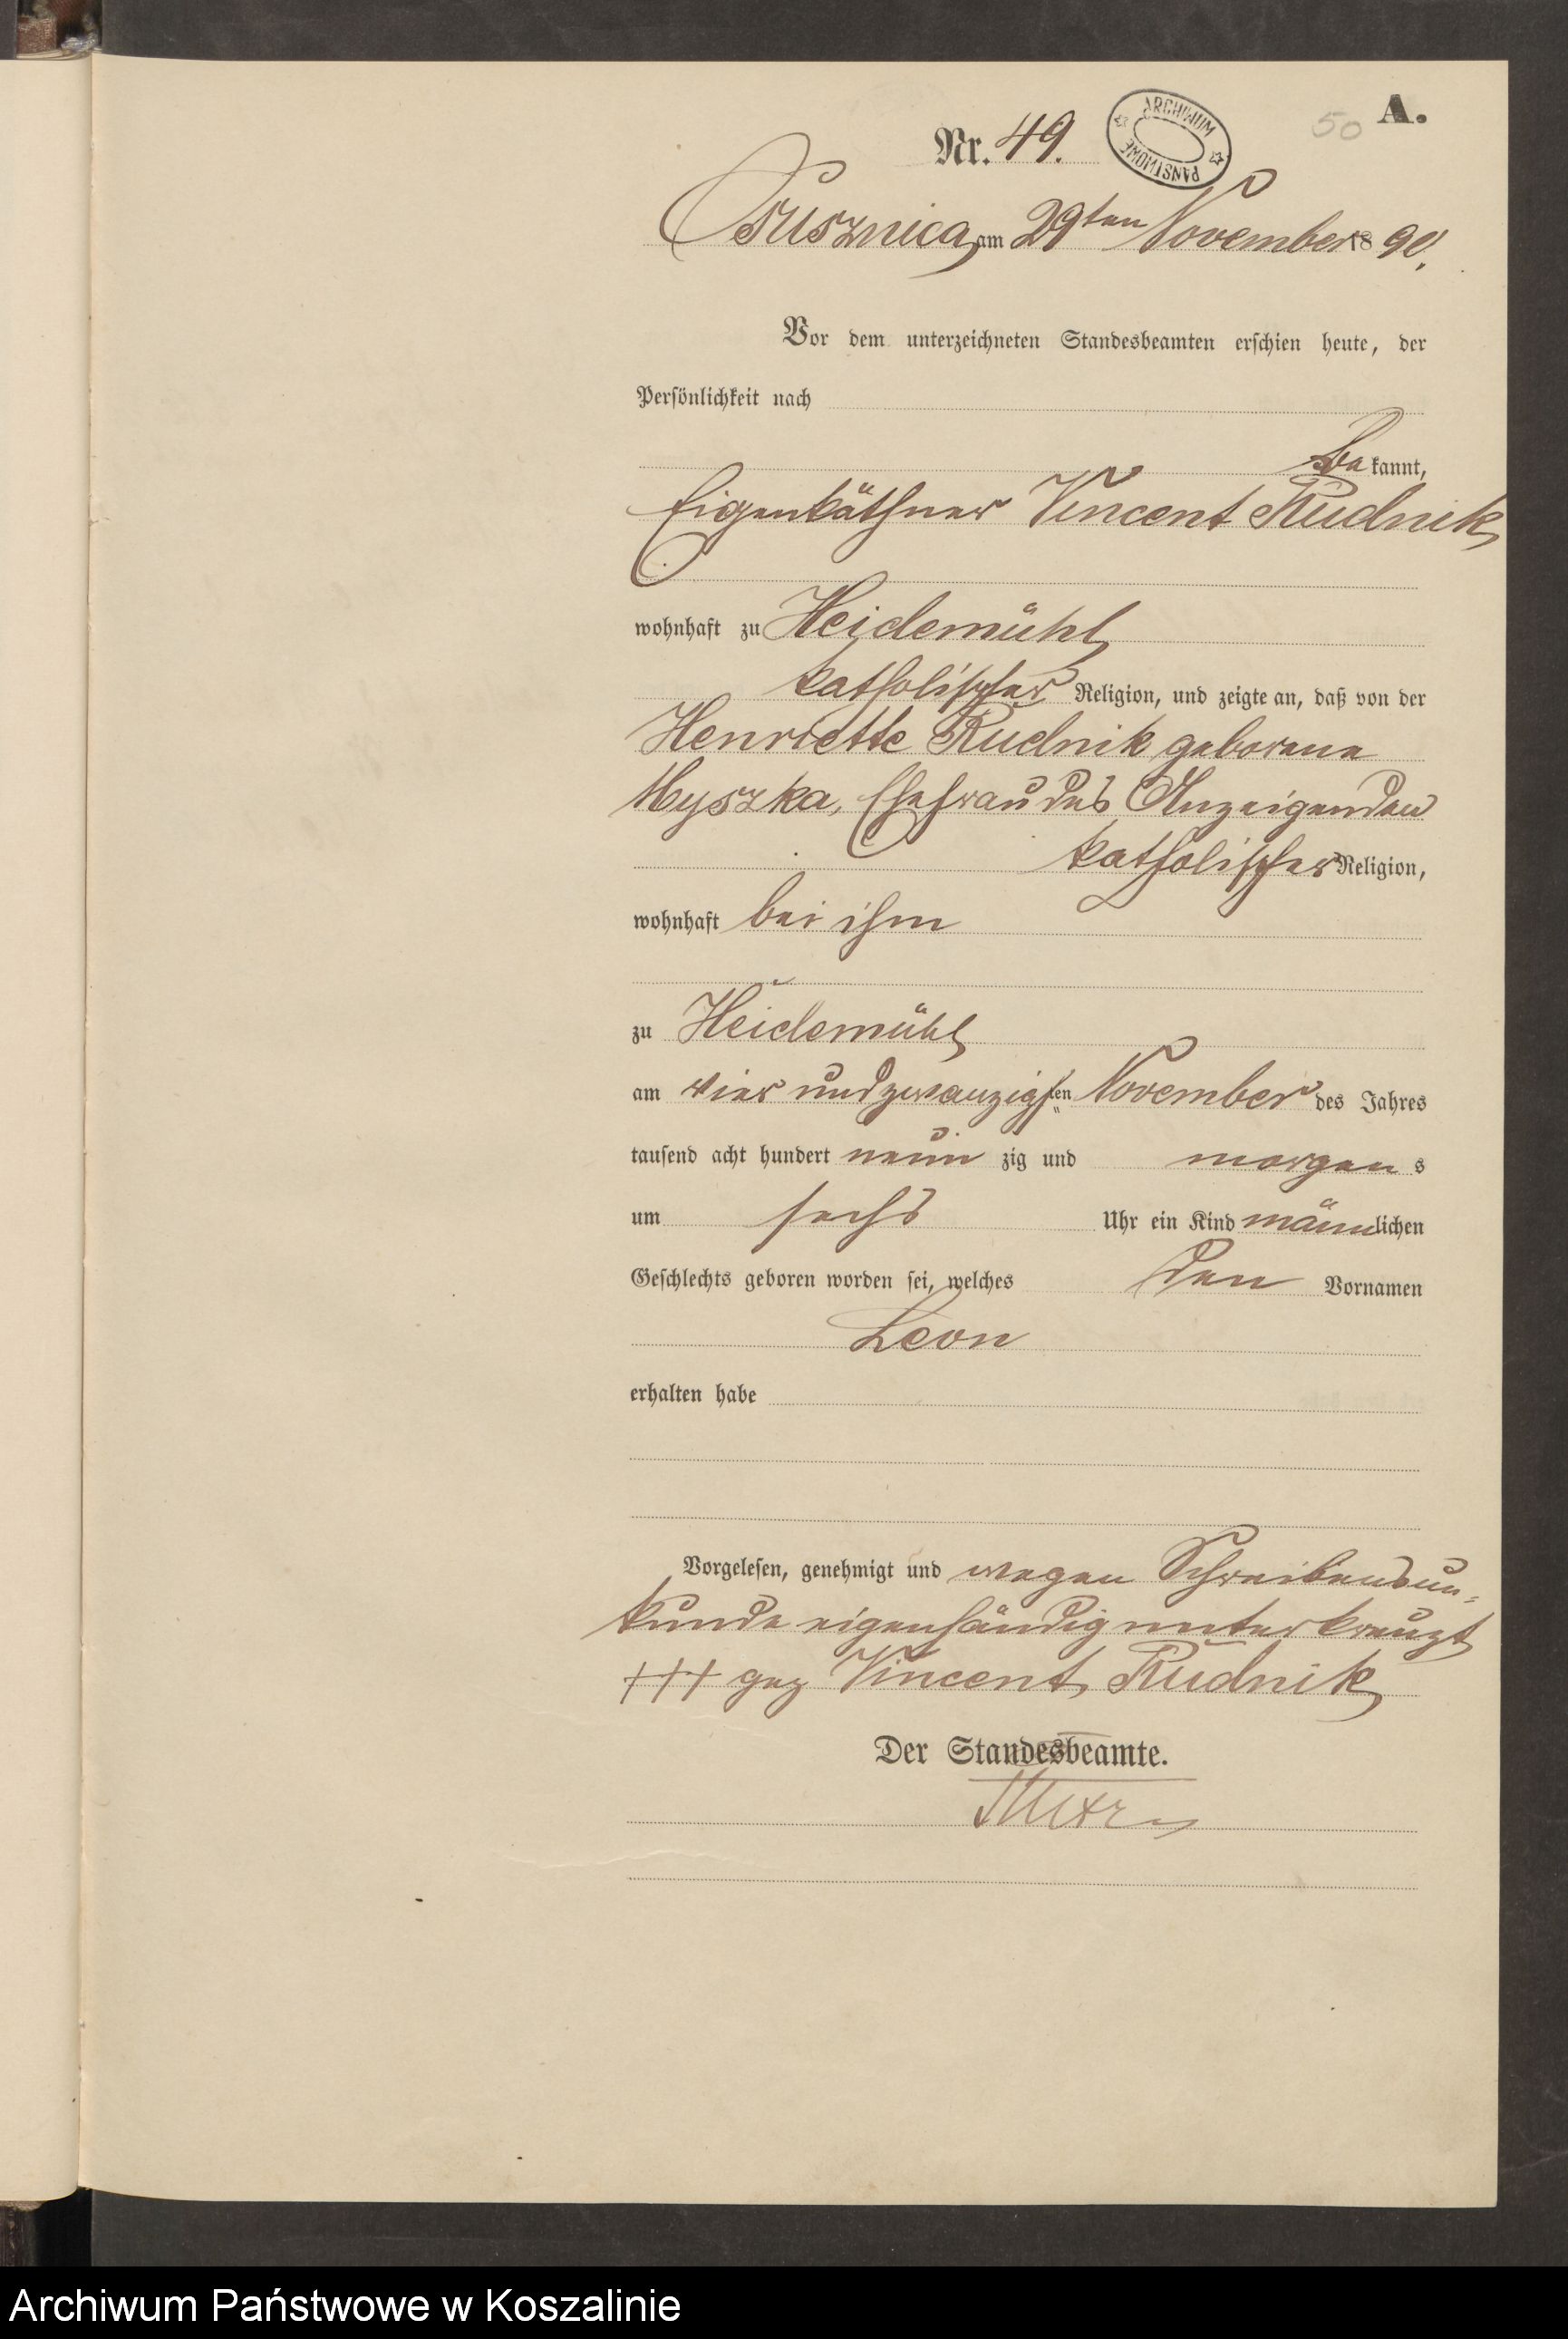 A.
50
Nr. 49.
ARCHIWUM PAŃSTWOWE
Ossusznica, am 29ten November 1890.
Vor dem unterzeichneten Standesbeamten erschien heute, der
Persönlichkeit nach
be kannt,
Eigenkäthner Vincent Rudnik
wohnhaft zu Heidemühl
katholischer Religion, und zeigte an, daß von der
Henriette Rudnik geborene
Myszka, Ehefrau des Anzeigenden
katholischer Religion,
wohnhaft bei ihm
zu Heidemühl
am vier und zwanzigsten November des Jahres
tausend acht hundert neun zig und morgen s
um sechs Uhr ein Kind männlichen
Geschlechts geboren worden sei, welches den Vornamen
Leon
erhalten habe
Vorgelesen, genehmigt und wegen Schreibensun-
kunde eigenhändig unterkreuzt
+++ gez Vincent Rudnik
Der Standesbeamte.
Archiwum Państwowe w Koszalinie